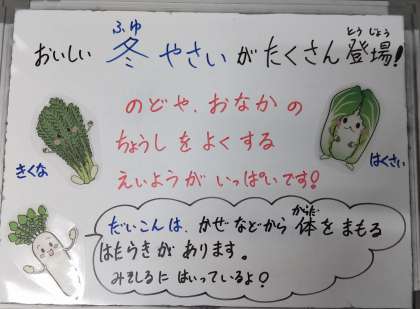 おいしい 冬 やさい が たくさん 登場!
ふゆ
とうじょう
のどや、おなかの
ちょうし を よく する
えいようが いっぱいです!
きくな
はくさい
だいこん は、かぜ などから 体 を まもる
からだ
はたらきが あります。
みそしるに はいっているよ!